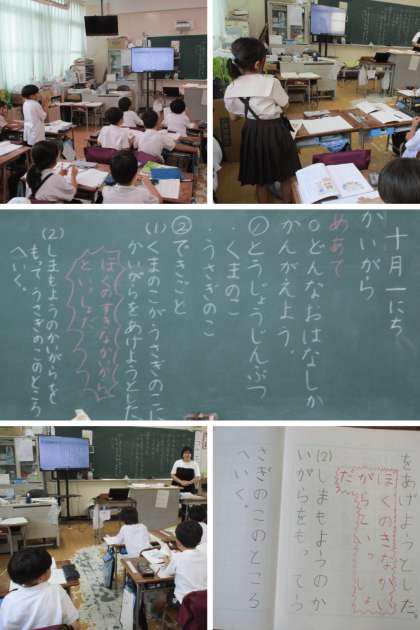 十月一にち
かいがら
めあて
○どんなおはなしか
かんがえよう。
①とうじょうじんぶつ
・くまのこ
・うさぎのこ
②できごと
(1)くまのこがうさぎのこに
かいがらをあげようとした。
ぼくのすきなかいがら
といっしょだ
(2)しまもようのかいがらを
もってうさぎのこのところ
へいく。
をあげようとした。
ぼくのすきなか
がらといっしょ
だ
(2)しまもようのか
いがらをもってう
さぎのこのところ
へいく。